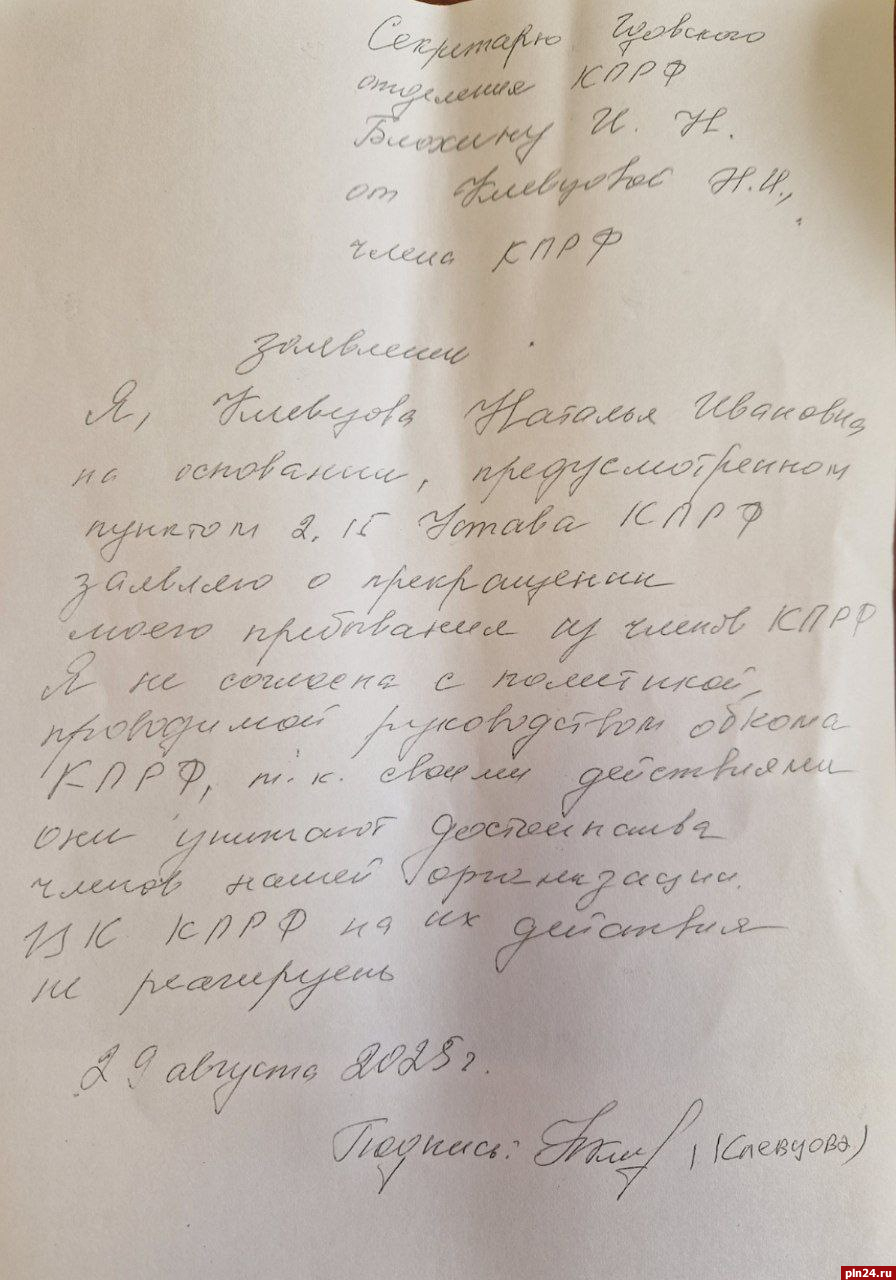 Секретарю Гдовского
отделения КПРФ
Блохину И. Н.
от Клевцовой Н.И.,
члена КПРФ
заявление
Я, Клевцова Наталья Ивановна
на основании, предусмотренном
пунктом 2.15 Устава КПРФ
заявляю о прекращении
моего пребывания из членов КПРФ
Я не согласна с политикой,
проводимой руководством обкома
КПРФ, т.к. своими действиями
они унижают достоинства
членов нашей организации.
ЦК КПРФ на их действия
не реагирует
29 августа 2025г.
Подпись: (Клевцова)
pln24.ru